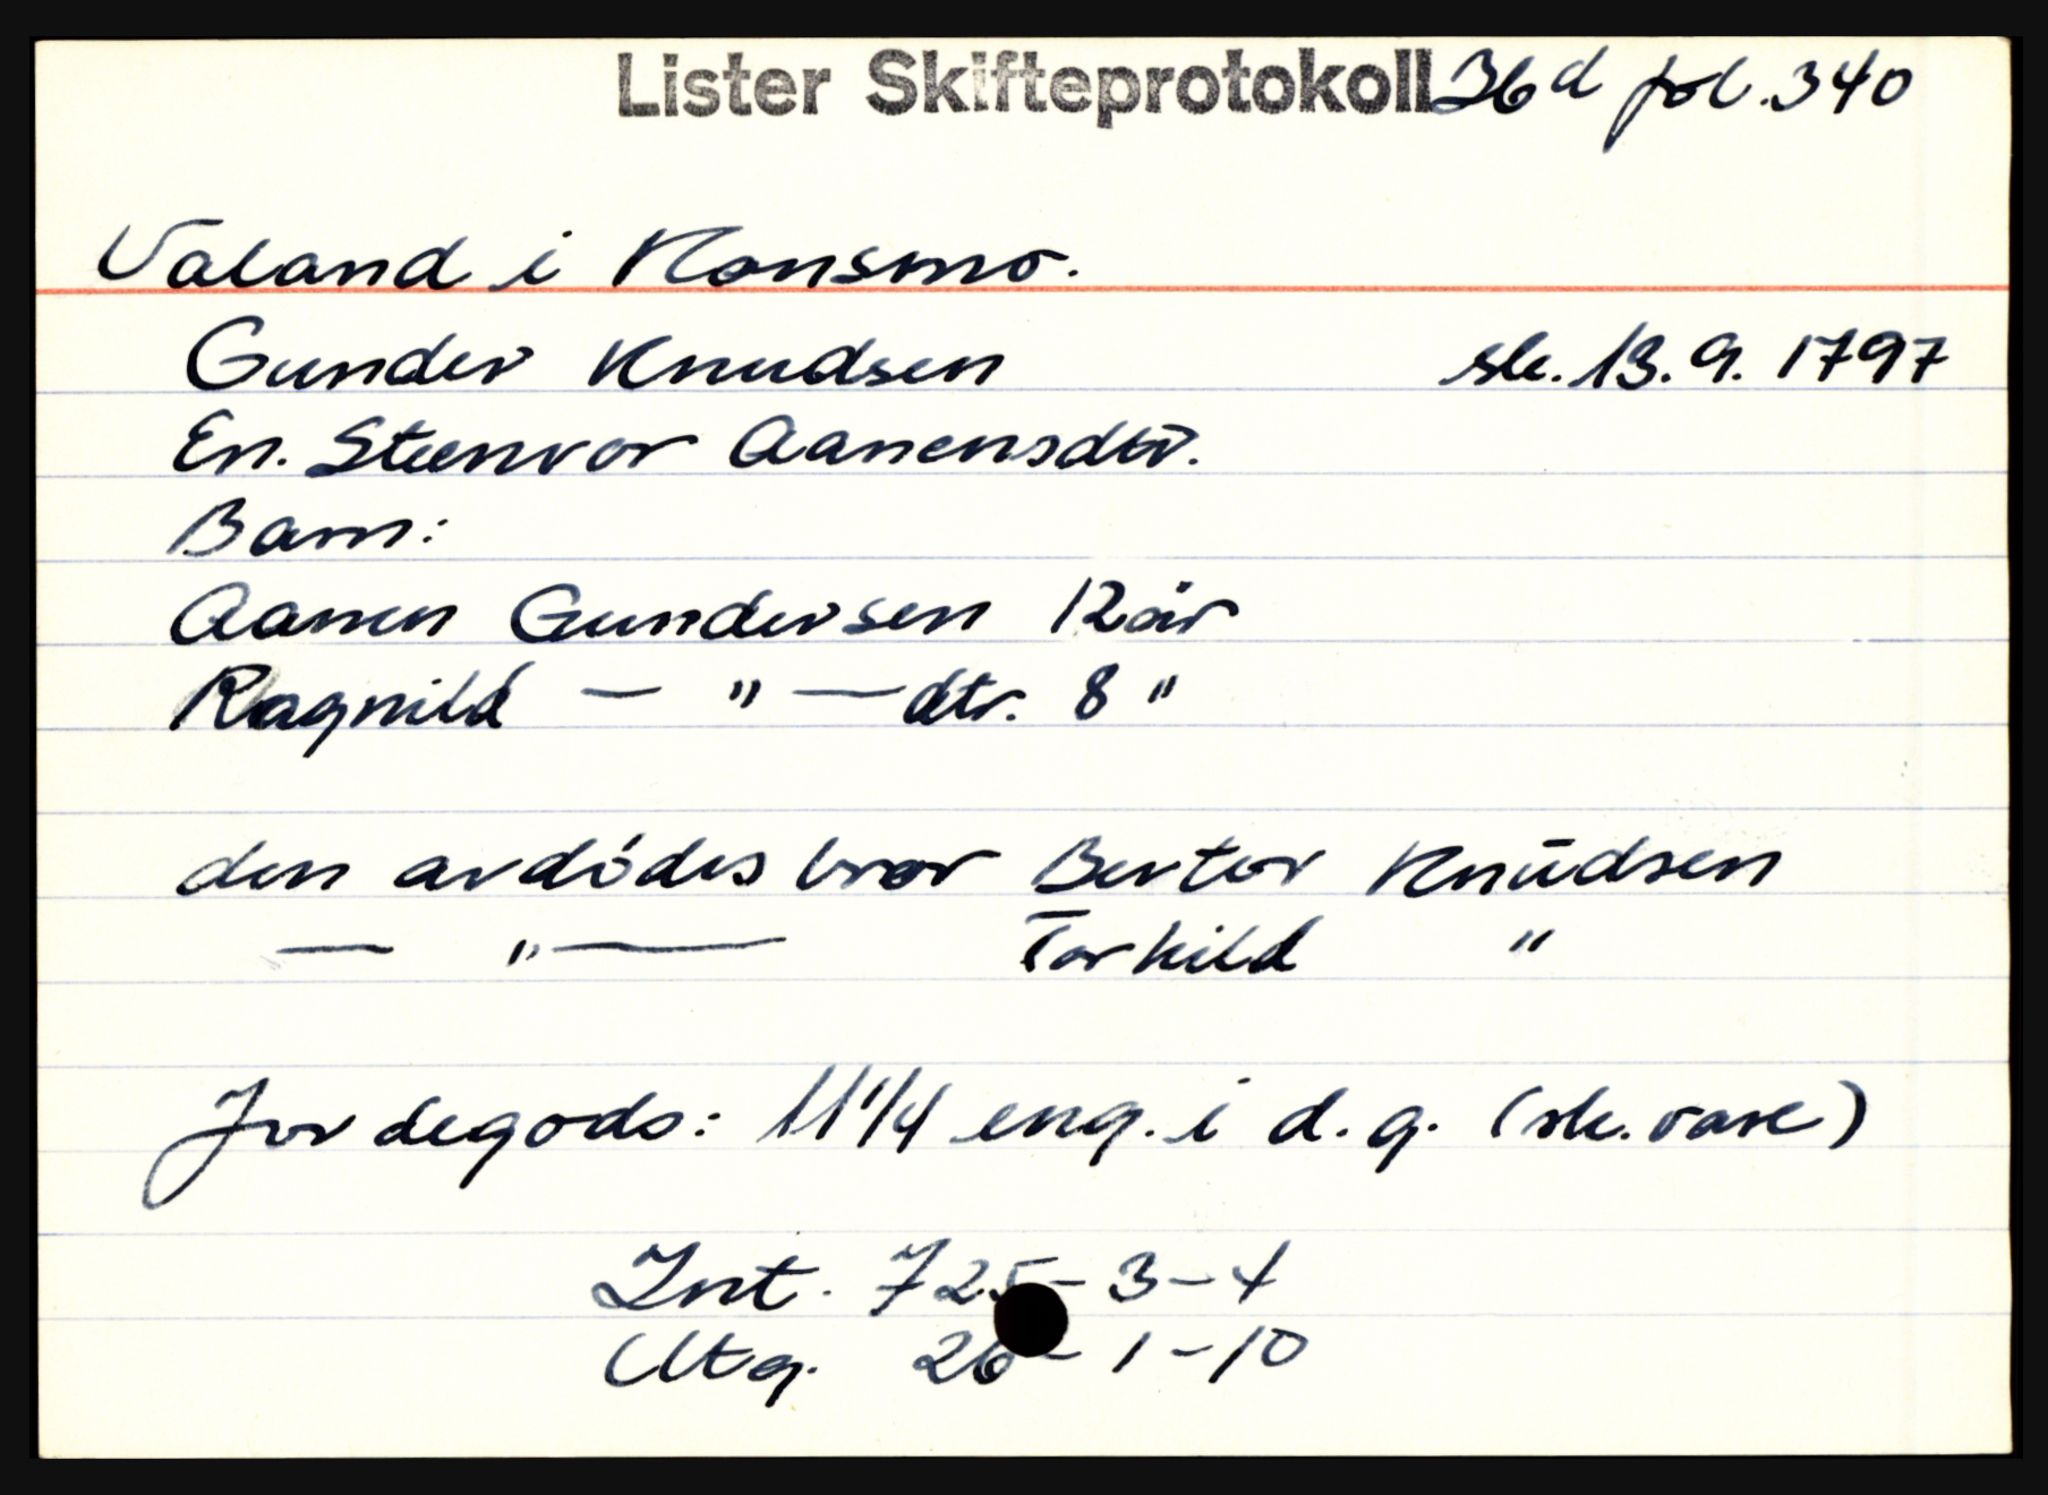 Lister Skifteprotokoll 36d fol. 340
Valand i Konsmo.
Gunder Knudsen sk. 13.9.1797
En. Steenvor Aanensdtr.
Barn:
Aanen Gundersen 12 år
Ragnild — " — dtr. 8 "
den avdödes bror Bertor Knudsen
— " — Torkild "
Jordegods: 11 1/4 eng. i d. g. (sk. vare)
Int. 725-3-4
Utg. 26-1-10